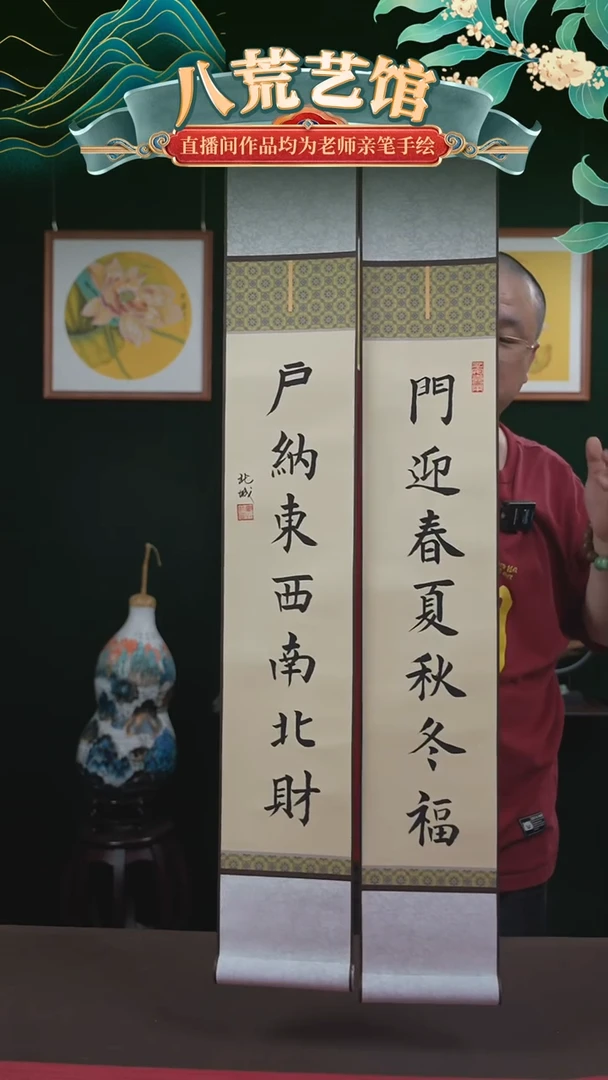 八荒艺馆
直播间作品均为老师亲笔手绘
門迎春夏秋冬福
戶納東西南北財
北城